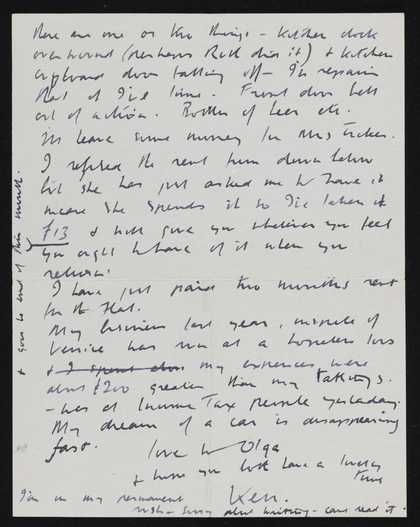 there are one or two things – kitchen clock
overwound (perhaps Ruth did it) & kitchen
cupboard door falling off – I'm repairing
that if I've time. Front door bell
out of action. Bottles of beer etc.
I'll leave some money for Mrs
I refused the rent from down below
but she has just asked me to have it
in case she spends it so I've taken it
£13 & will give you whatever you feel
you ought to have of it when you
return.
& goes to end of this month.
I have just paid two months rent
for the flat.
My business last year, inspite of
Venice was run at a hopeless loss
& I spent my expenses were
about £200 greater than my takings.
– was at Income Tax people yesterday.
My dream of a car is disappearing
fast.
love to Olga
& hope you both have a lovely
time
Ken.
I'm in my permanent
rush – sorry about writing – cant read it.